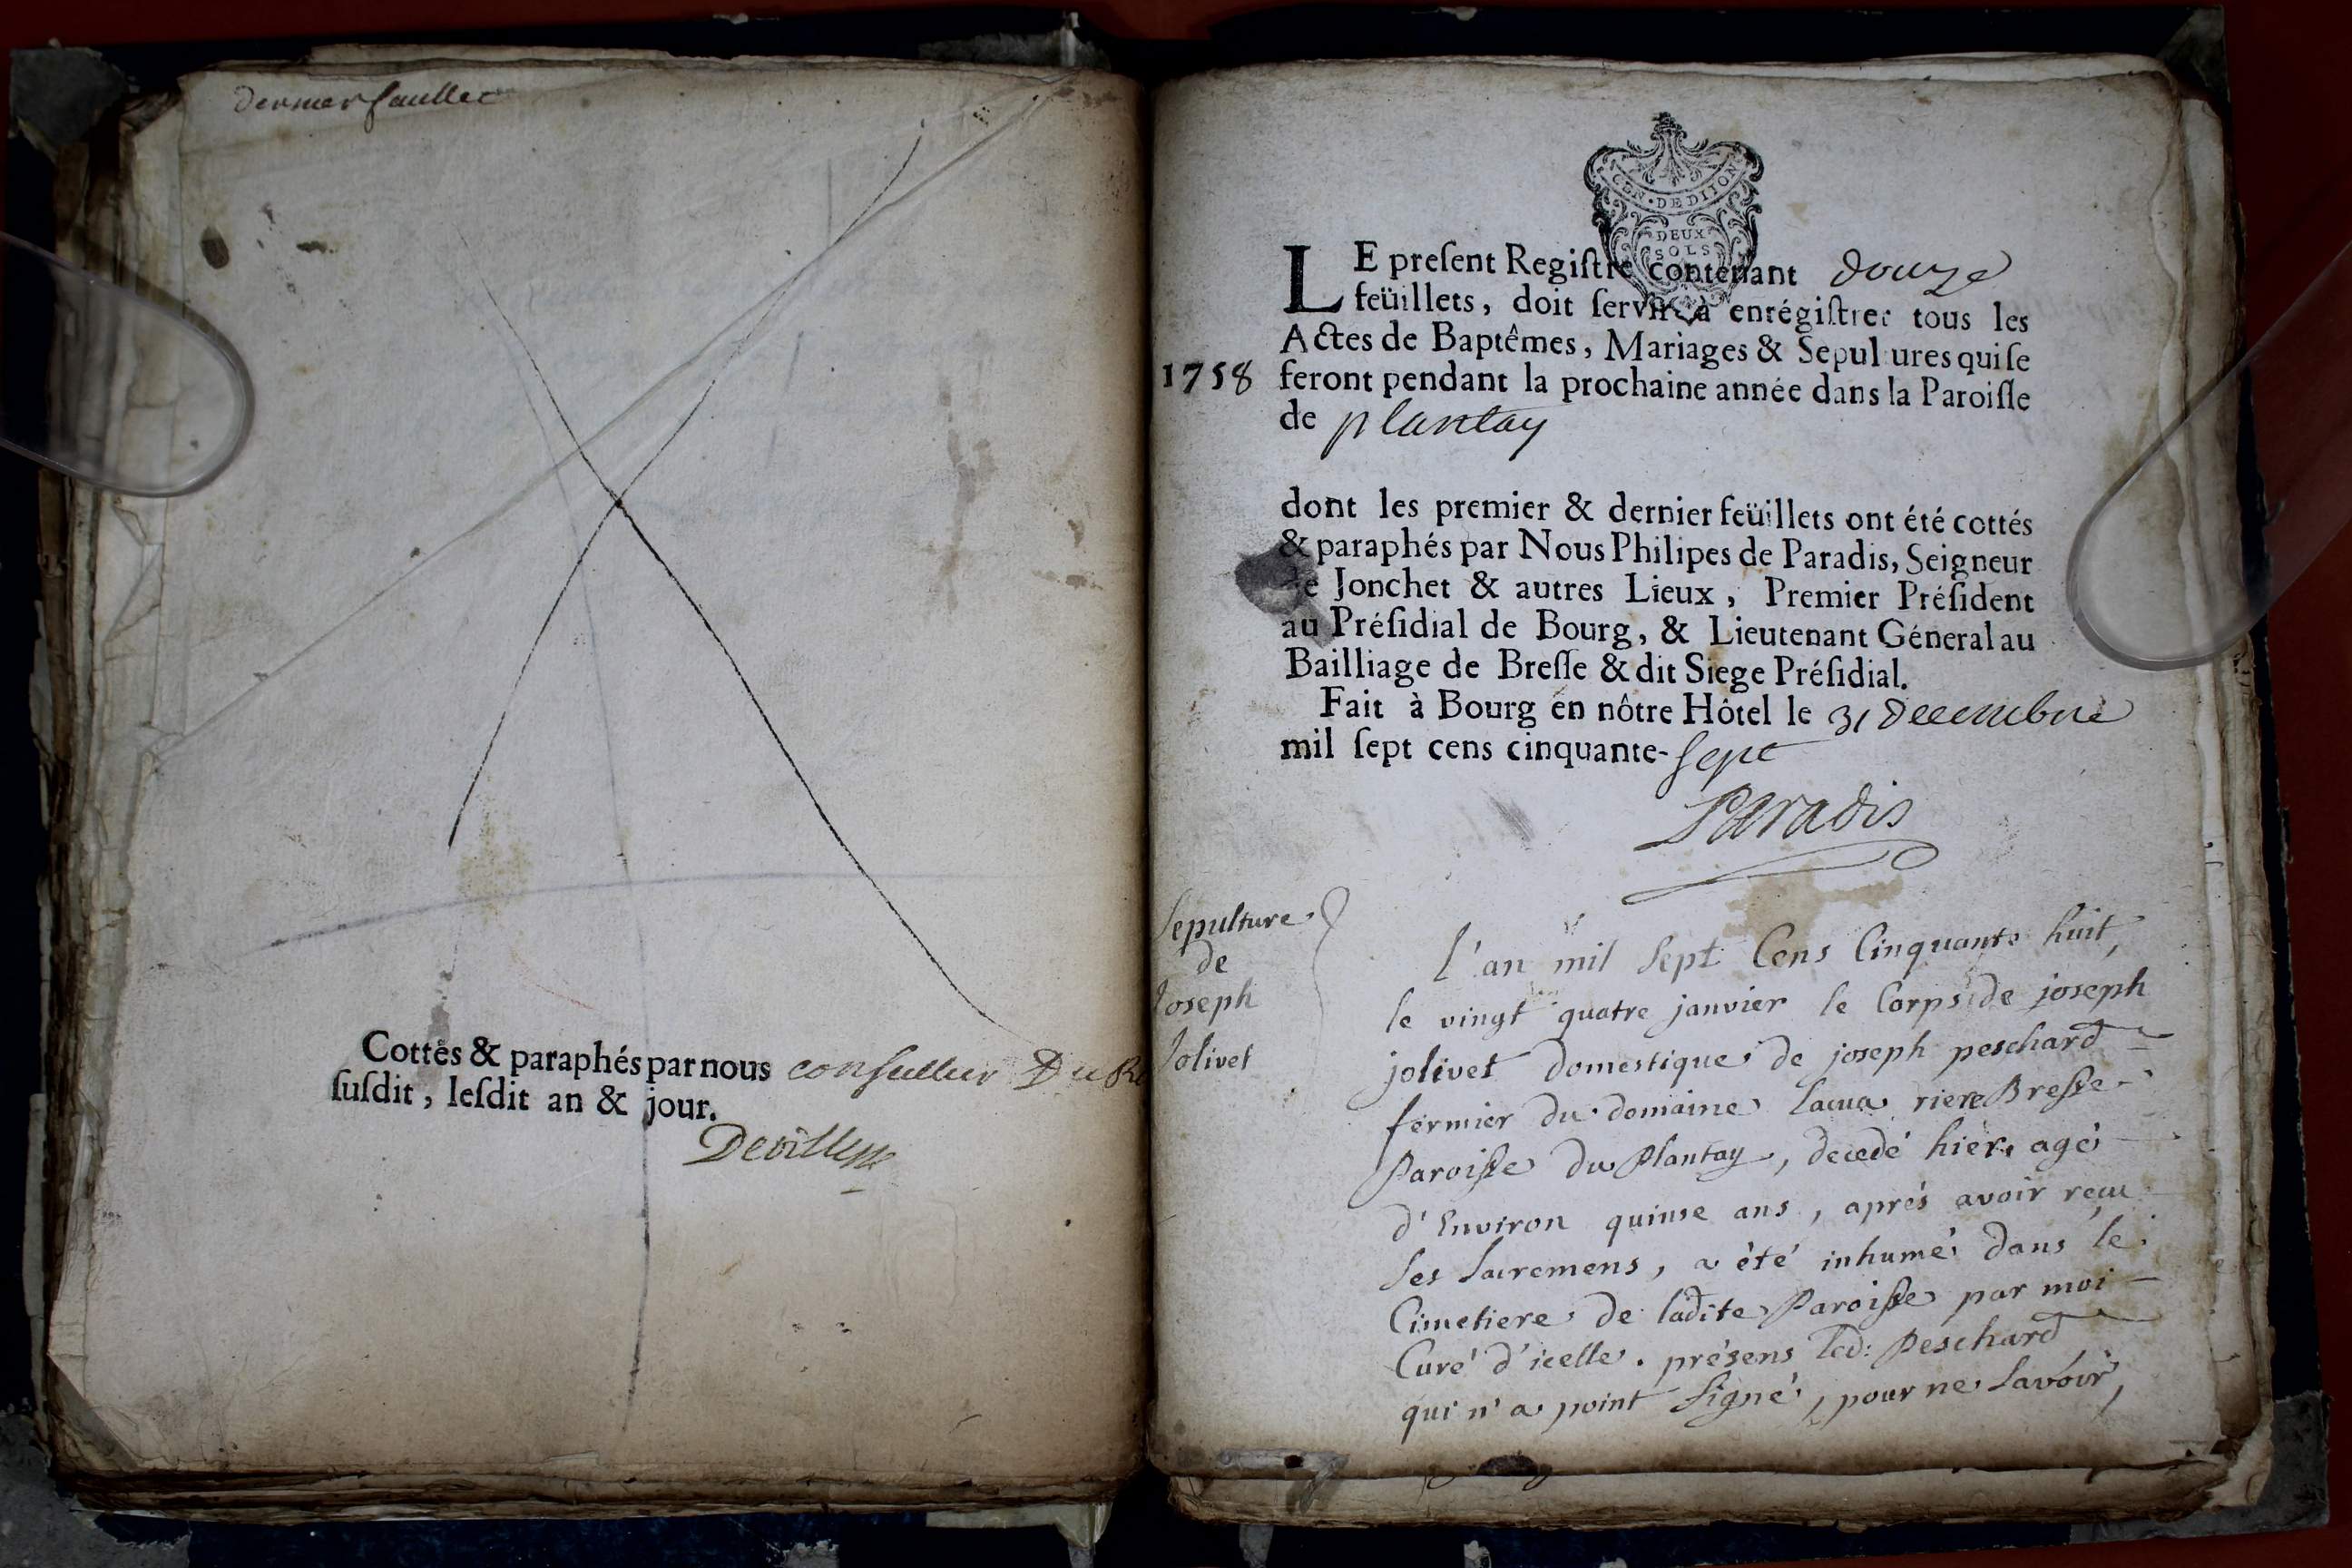 dernier feuillet
Cottés & paraphés par nous conseiller Du Ro
susdit, lesdit an & jour.
GEN·DE DIJON
DEUX
SOLS
LE present Registre contenant douze
feüillets, doit servir a enrégistrer tous les
Actes de Baptêmes, Mariages & Sepultures qui se
1758 feront pendant la prochaine année dans la Paroisse
de plantay
dont les premier & dernier feüillets ont été cottés
& paraphés par Nous Philipes de Paradis, Seigneur
de Jonchet & autres Lieux, Premier Présıdent
au Présidial de Bourg, & Lieutenant Géneral au
Bailliage de Bresse & dit Siege Présidial.
Fait à Bourg en nôtre Hôtel le 31 decembre
mil sept cens cinquante-sept
Paradis
Sepulture
de
Joseph
Jolivet
l'an mil sept Cens Cinquante huit,
le vingt quatre janvier le Corps de joseph
jolivet domestique de joseph peschard
fermier du domaine riere Bresse
Paroisse du Plantay, decedé hier, agé
d'Environ quinse ans, aprés avoir reçu
ses sacremens, a été inhumé dans le
Cimetiere de ladite Paroisse par moi
Curé d'icelle. présens led: Peschard
qui n'a point signé, pour ne savoir,